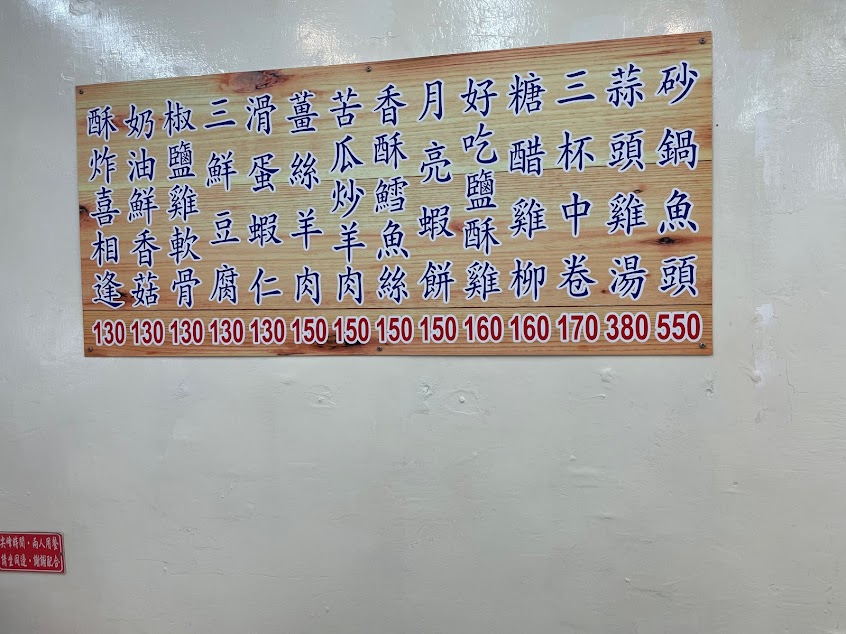 砂鍋魚頭 550
蒜頭雞湯 380
三杯中卷 170
糖醋雞柳 160
好吃鹽酥雞 160
月亮蝦餅 150
香酥鱈魚絲 150
苦瓜炒羊肉 150
薑絲羊肉 150
滑蛋蝦仁 130
三鮮豆腐 130
椒鹽雞軟骨 130
奶油鮮香菇 130
酥炸喜相逢 130
尖峰時間，兩人用餐
請坐同邊，謝謝配合